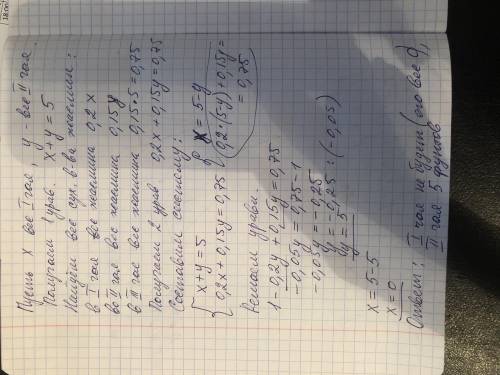 Пусть x вес I чая, y - вес II чая.
Получаем 1 урав. x + y = 5
Найдём вес сух. в-ва жасмин:
в I чае вес жасмина 0,2 x
во II чае вес жасмина 0,15 y
в II чае вес жасмина 0,15·5=0,75
Получаем 2 урав 0,2x + 0,15y = 0,75
Составим систему:
{ x + y = 5
0,2x + 0,15y = 0,75
{ x = 5-y
0,2·(5-y)+0,15y = 0,75
Решаем уравн.
1 - 0,2y + 0,15y = 0,75
-0,05y = 0,75-1
-0,05y = -0,25
y = -0,25 : (-0,05)
y = 5
x = 5-5
x = 0
Ответ: I чая не будет (его вес 0),
II чая 5 фунтов